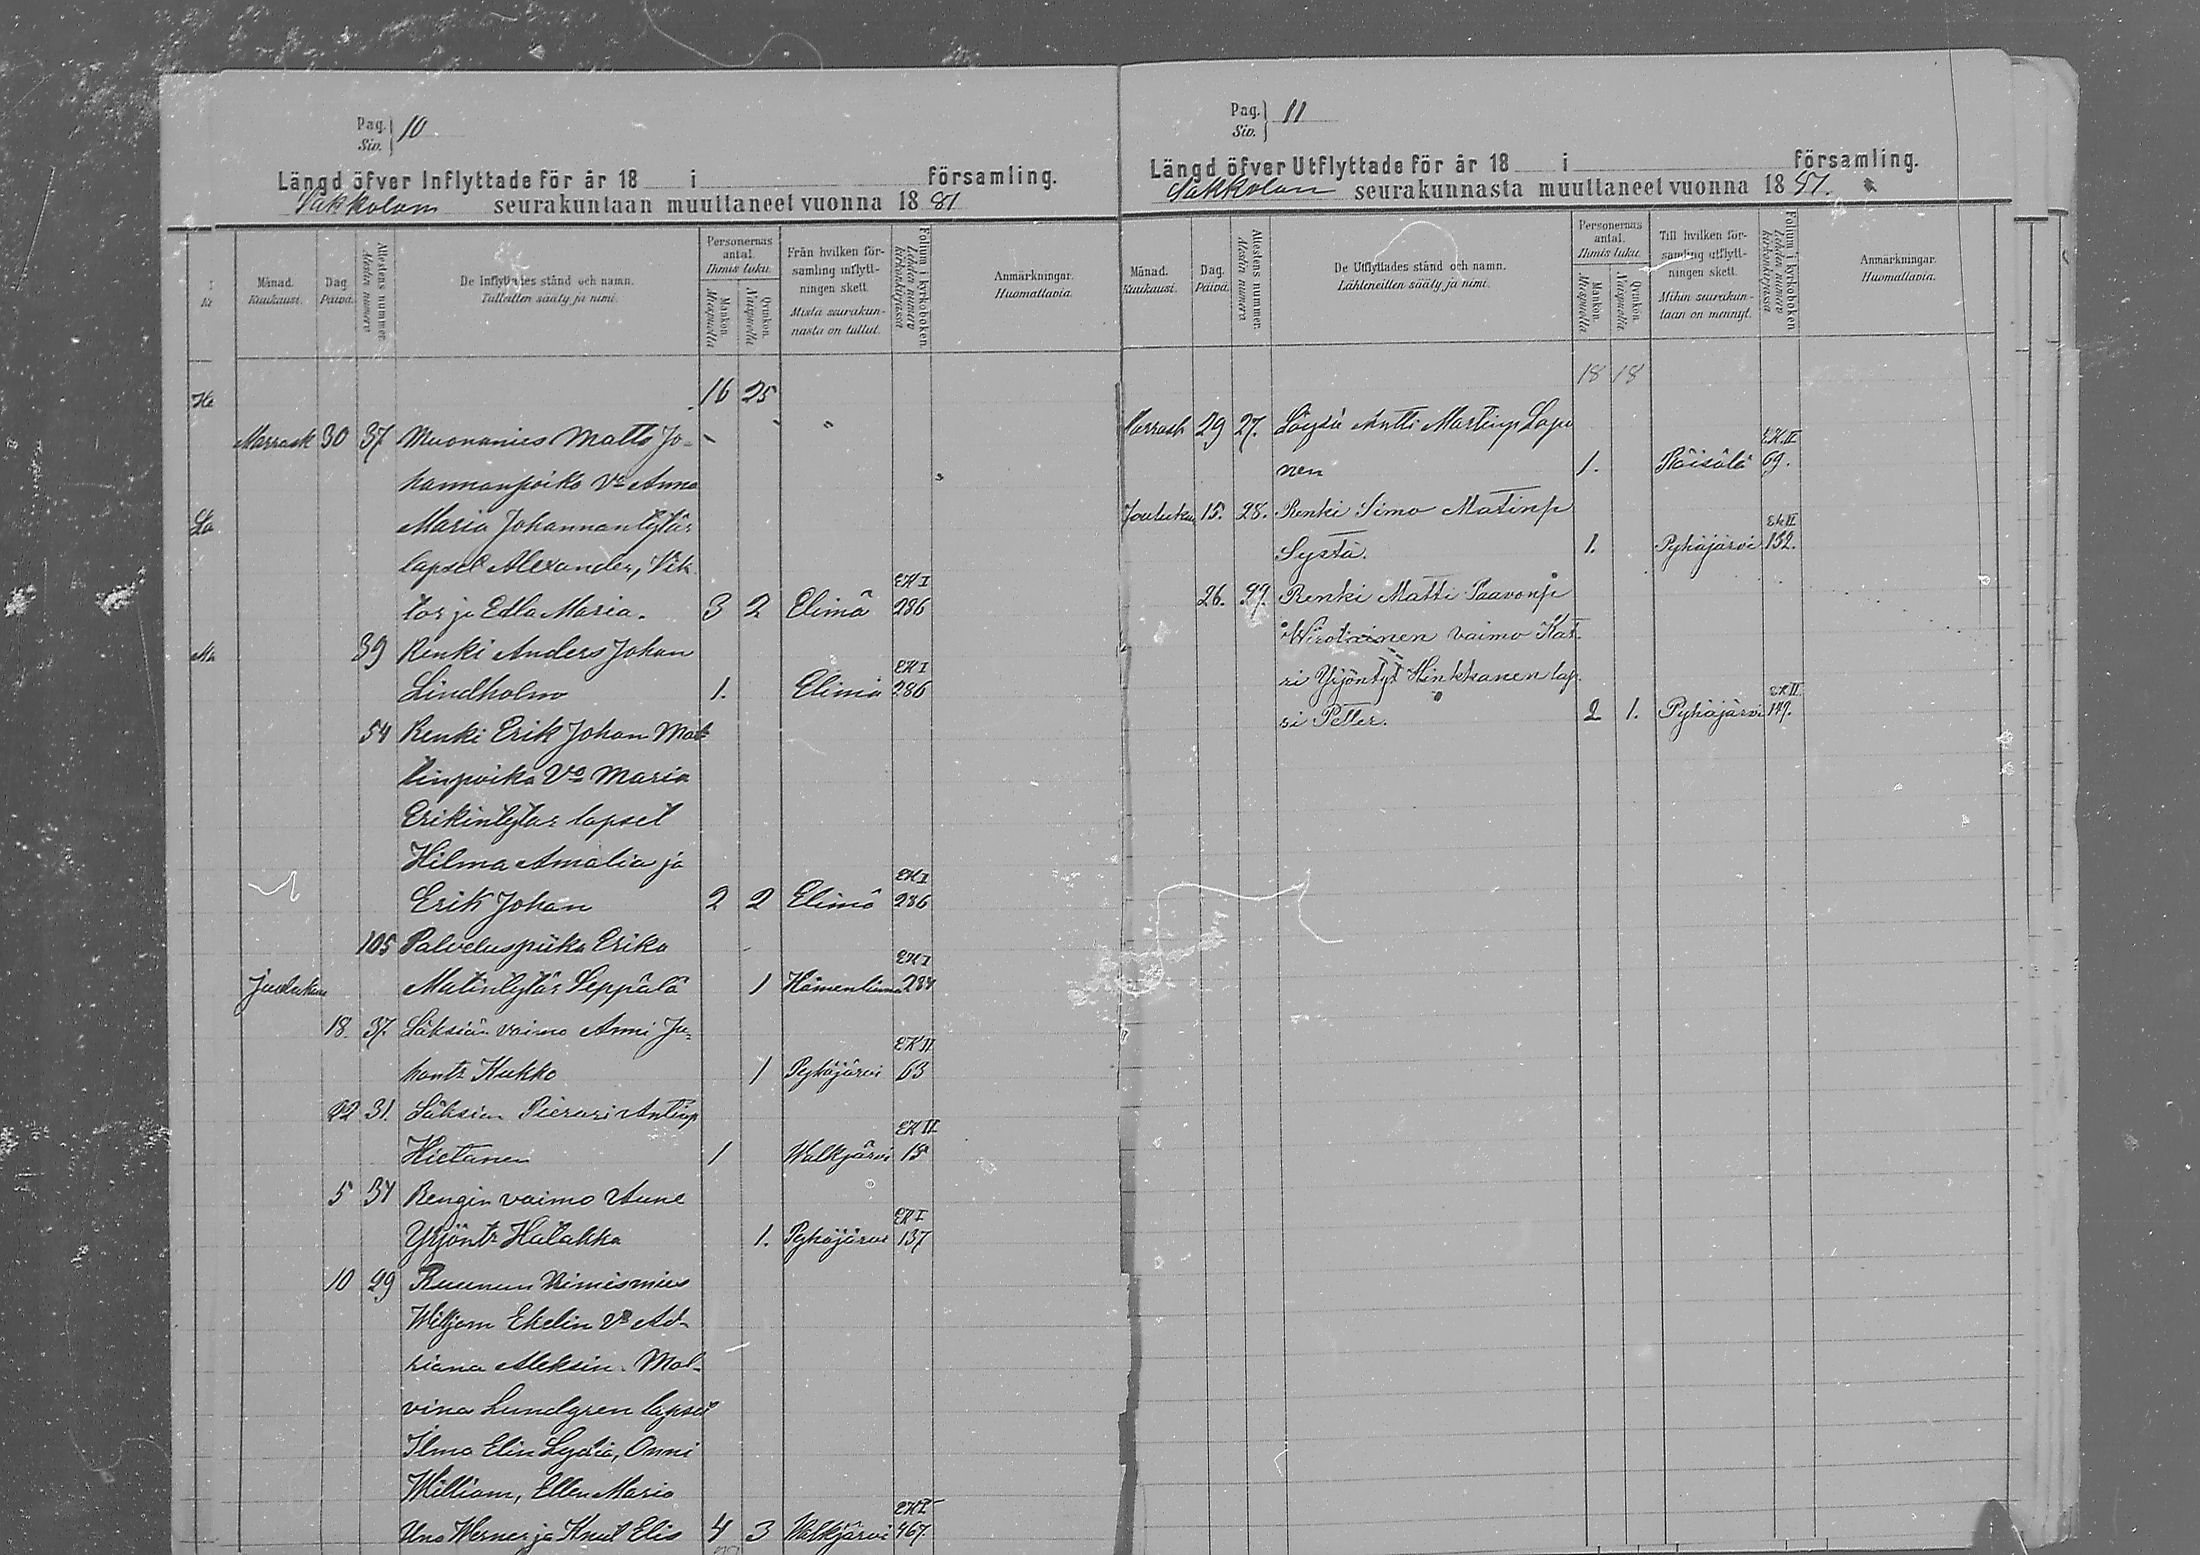 Pag. Siv. } 10
Längd öfver Inflyttade för år 18 i församling.
Sakkolam seurakuntaan muuttaneet vuonna 18 81
Månad. Kuukausi.
Dag Päivä.
Attestens nummer. Atestin numero
De Inflyttades stånd och namn. Tulleitten sääty ja nimi.
Personernas antal. Ihmis luku.
Mankön. Miespuolia
Qvinkön. Naispuolia
Från hvilken församling inflyttningen skett. Mistä seurakunnasta on tullut.
Folium i kyrkoboken. Lehden numero kirkonkirjassa
Anmärkningar. Huomattavia.
16 25
Marrask 30 37 Muonamies Matts Jo-
hannanpoika Vo Anna
Maria Johannantytär
lapset Alexander, Vik
EK I
tor ja Edla Maria. 3 2 Elimä 286
39 Renki Anders Johan
EK I
Lindholm 1. Elimä 286
54 Renki Erik Johan Mat
tinpoika Vo Maria
Erikintytär lapset
Hilma Amalia ja
EK I
Erik Johan 2 2 Elimä 286
105 Palveluspiika Erika
EK I
Joulukuu Matintytär Seppälä 1 Hämenlinna 284
18. 37. Läksiän vaimo Anni Ju-
EK II
hontr Kukko 1 Pyhäjärvi 63
22 31. Läksiän Pierari Antinp
EK II
Hietanen 1 Walkjärvi 18
5 34 Rengin vaimo Aune
EK I
Yrjöntr Halakka 1. Pyhäjärvi 137
10 29 Ruunun Nimismies
Wiljom Ekelin Vo Ad-
riana Aleksin. Mal-
vina Lundgren lapset
Ilma Elin Lydia, Onni
William, Ellen Maria
EK I
Uno Werner ja Knut Elis 4 3 Walkjärvi 467
Pag. Siv. } 11
Längd öfver Utflyttade för år 18 i församling.
Sakkolan seurakunnasta muuttaneet vuonna 18 81.
Månad. Kuukausi.
Dag. Päivä.
Attestens nummer. Atestin numero
De Utflyttades stånd och namn. Lähteneitten sääty ja nimi.
Personernas antal. Ihmis luku.
Mankön. Miespuolia
Qvinkön. Naispuolia
Till hvilken församling utflyttningen skett. Mihin seurakuntaan on mennyt.
Folium i kyrkoboken. Lehden numero kirkonkirjassa
Anmärkningar. Huomattavia.
18 18
Marrask 29 27. Löysä Antti Martinp Lapo
EK. II
nen 1. Räisälä 69.
Joulukuu 15. 28. Renki Simo Matinp
EK II
Systä. 1. Pyhäjärvi 152.
26. 29. Renki Matti Paavonp
Wirolainen vaimo Kat-
ri Yrjöntyt Hinkkanen lap-
EK II
si Petter. 2 1. Pyhäjärvi 147.